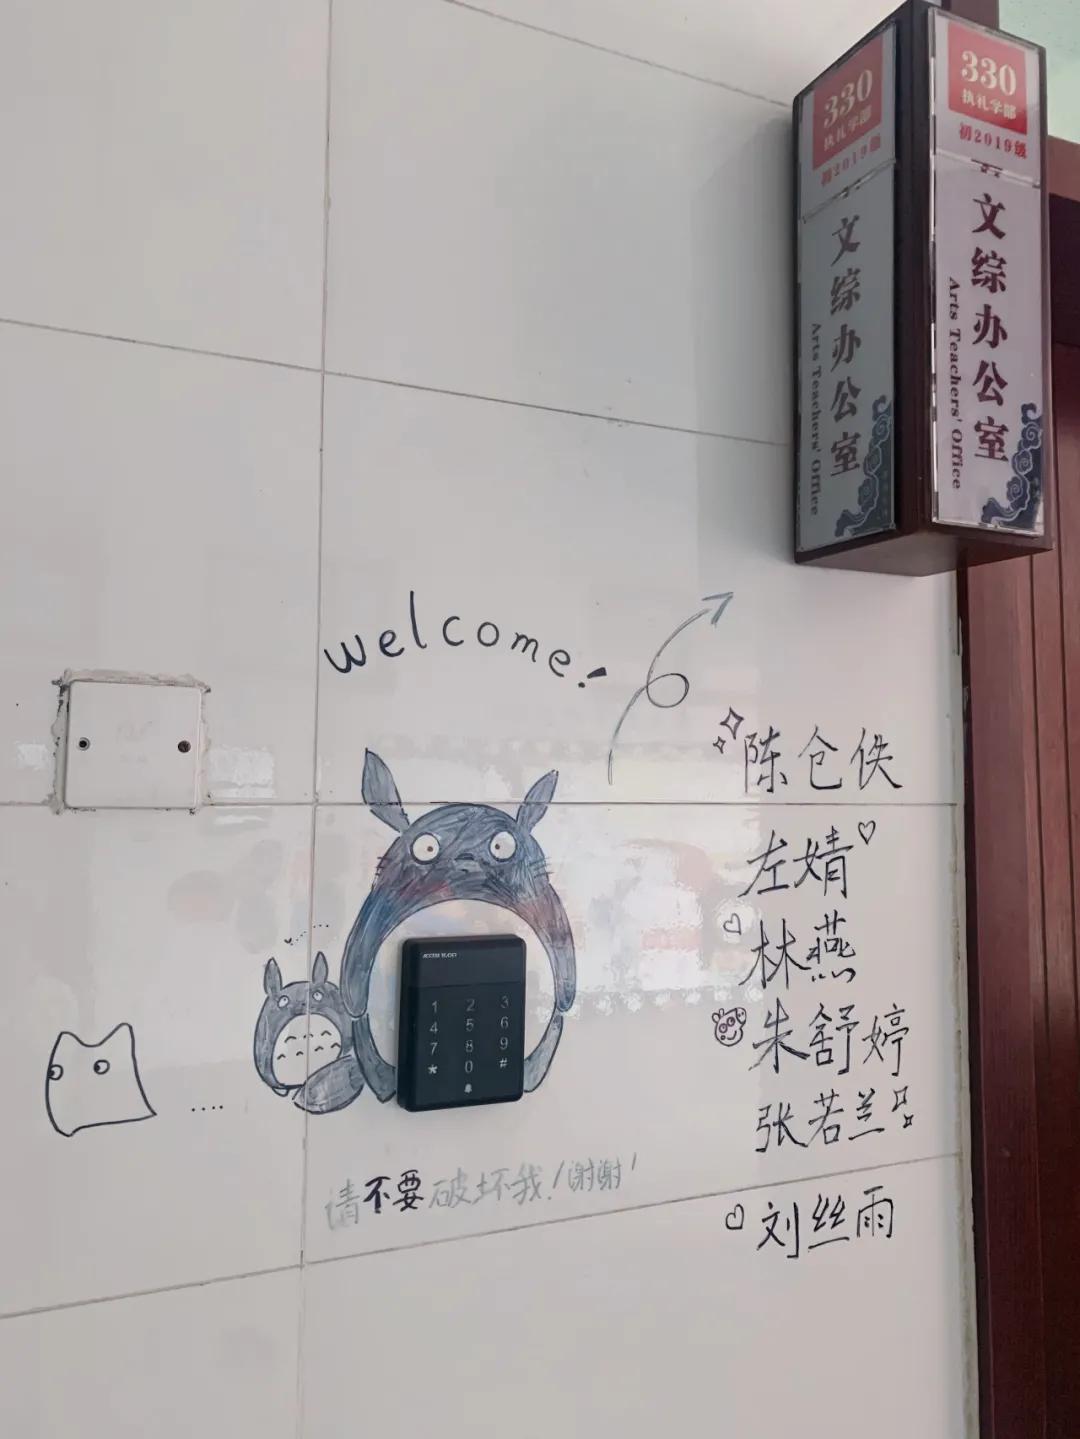 330
执礼学部
初2019级
文综办公室
Arts Teachers' Office
330
执礼学部
初2019级
文综办公室
Arts Teachers' Office
welcome!
陈仓佚
左婧
林燕
朱舒婷
张若兰
刘丝雨
1 2 3
4 5 6
7 8 9
* 0 #
请不要破坏我!谢谢!